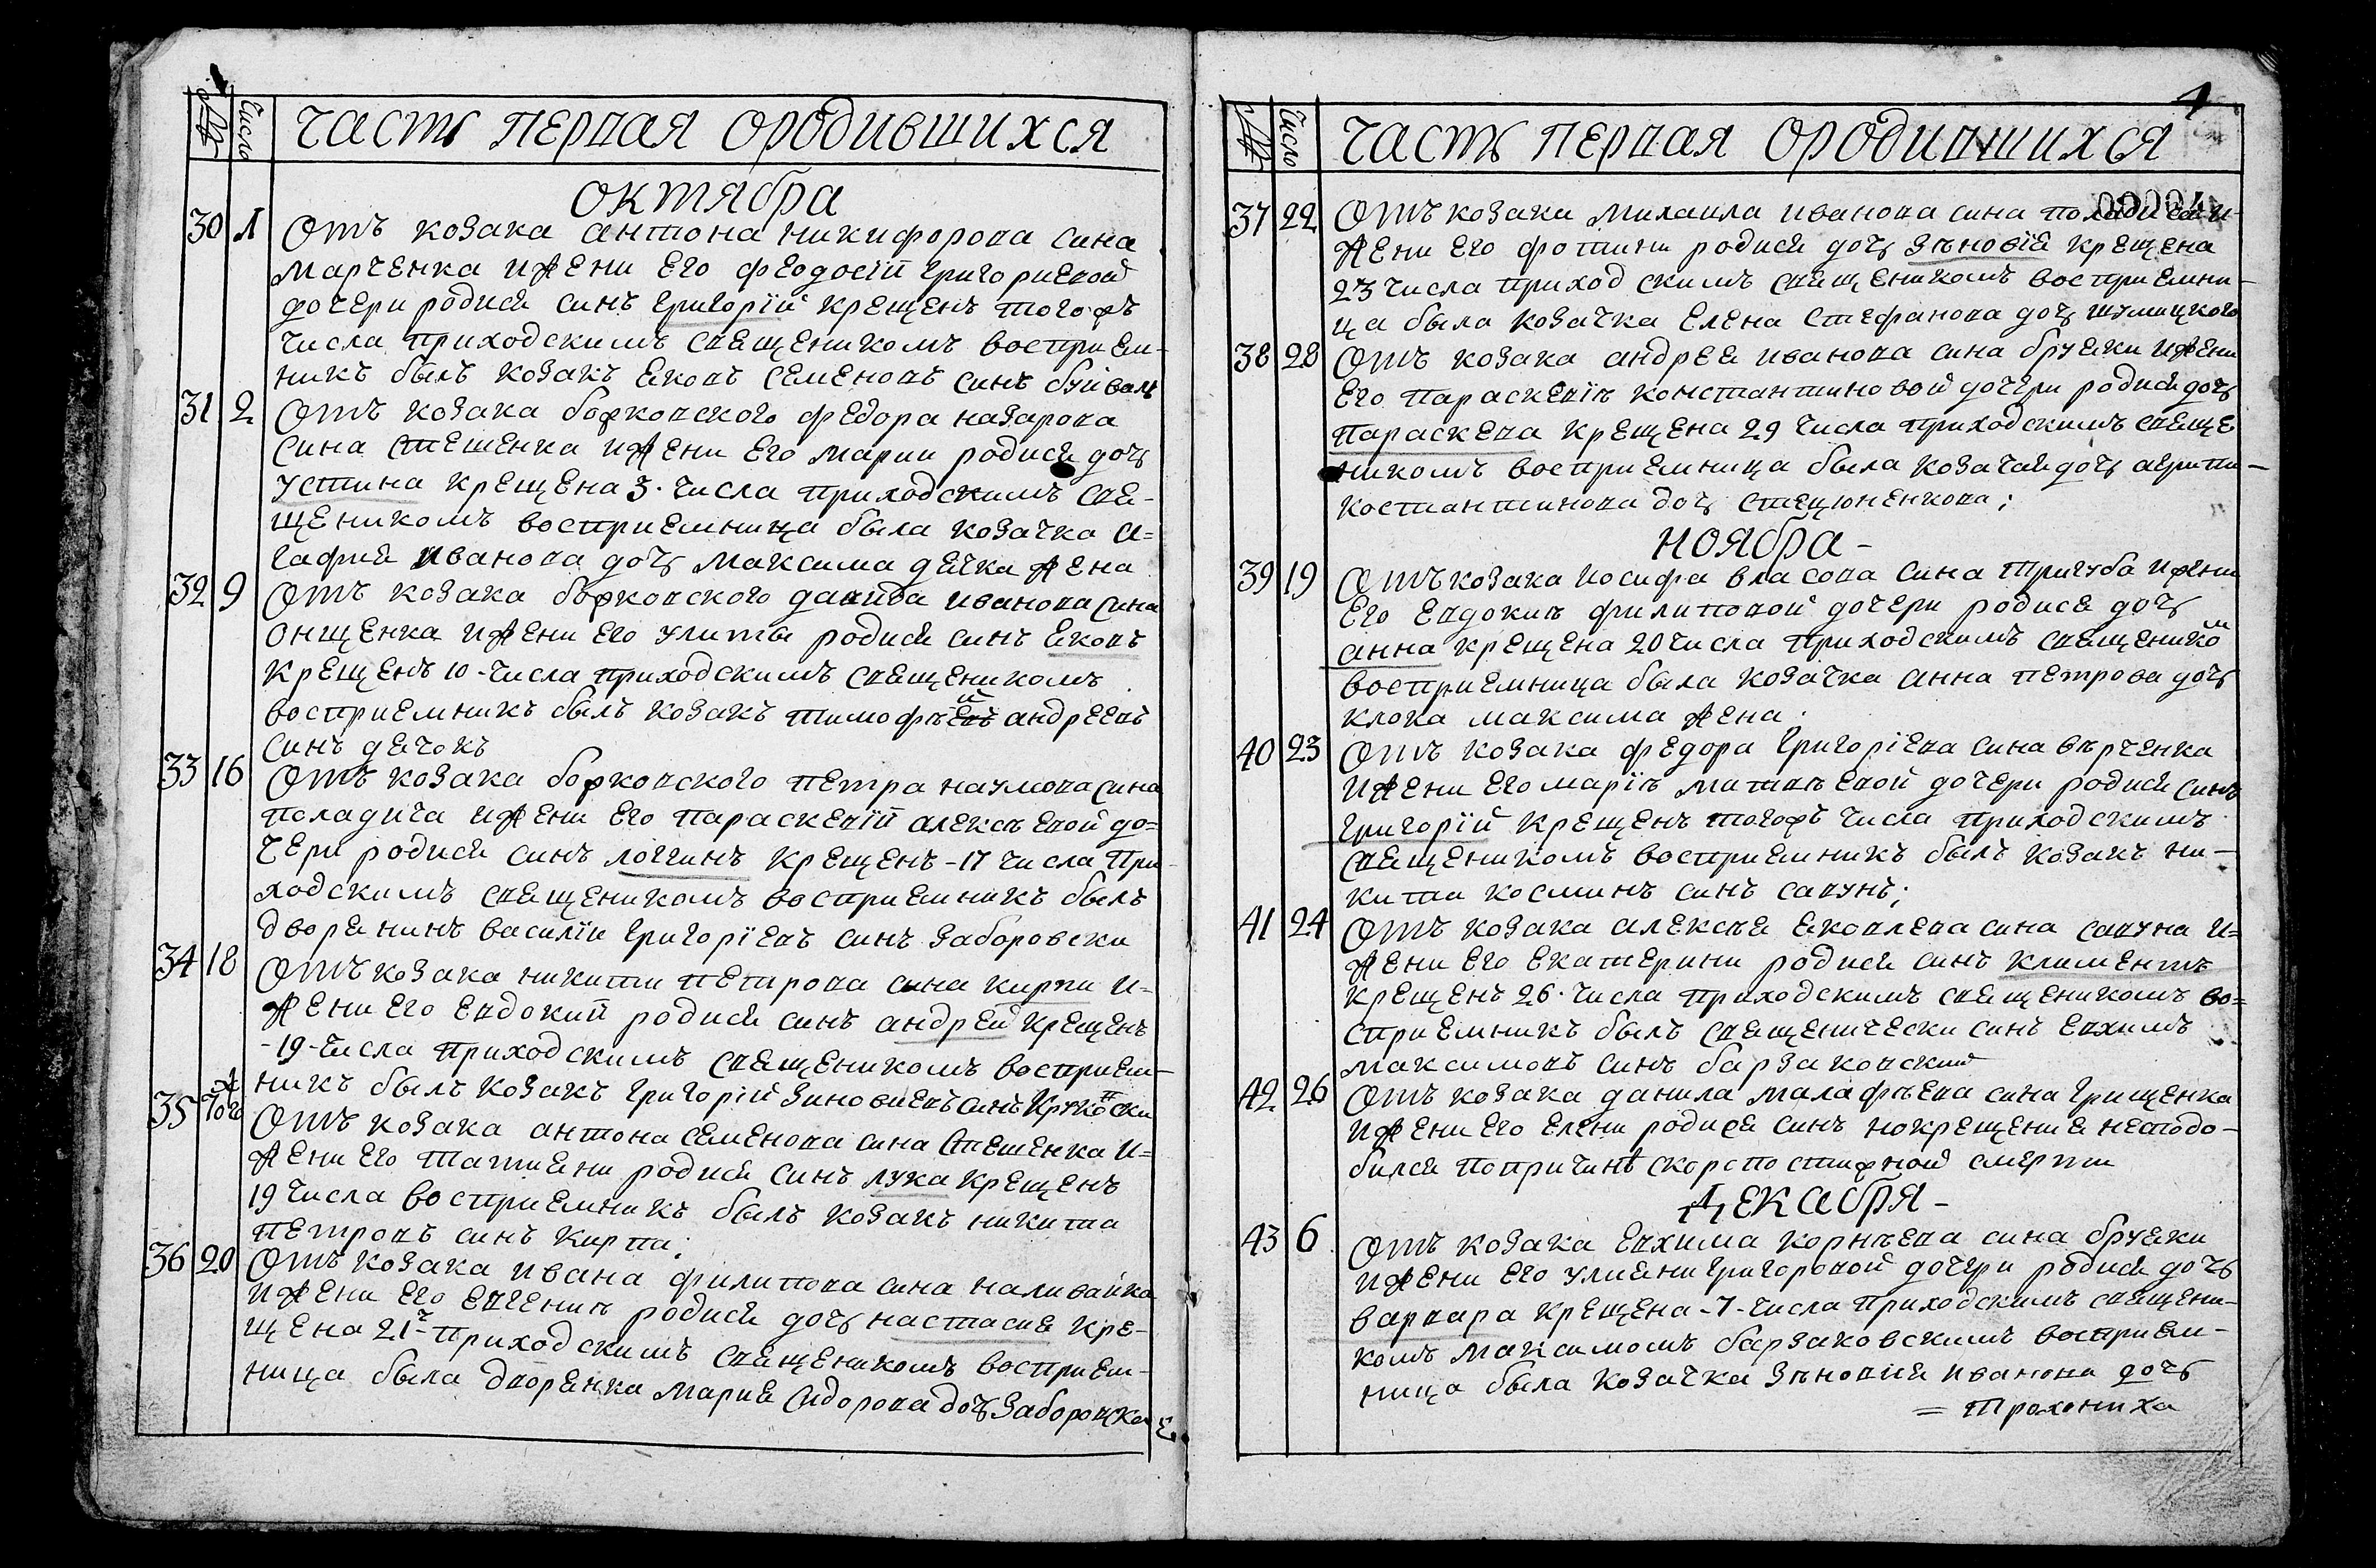 № Число Часть первая ородившихся
октября
30 1 Отъ козака антона никифорова сина
Марченка ижени его феодосіи григориевой
дочери родися синъ григорій крещенъ тогожъ
числа приходскимъ священикомъ восприем-
никъ былъ козакъ яковъ семеновъ синъ буйвалъ
31 2 Отъ козака божковского федора назарова
сина стешенка ижени его марии родися дочъ
устина крещена 3. числа приходскимъ свя-
щеникомъ восприемница была козачка а=
гафия иванова дочъ максима дячка жена
32 9 Отъ козака божковского давида иванова сина
онищенка ижени его улиты родися синъ яковъ
крещенъ 10 - числа приходскимъ священиком
восприемникъ былъ козакъ тимофѣй андреевъ
синъ дячокъ
33 16 Отъ козака божковского петра наумова сина
поладича ижени его параскевій алексѣевой до=
чери родися синъ логгинъ крещенъ - 17 числа при-
ходскимъ священиком восприемникъ былъ
дворянинъ василіи григоріевъ синъ заборовски
34 18 Отъ козака никити петрова сина кирпи и=
жени его евдокий родися синъ андрей крещенъ
- 19 - числа приходскимъ священиком восприем-
никъ былъ козакъ григорій зиновиевъ синъ круковски
35 тогож Отъ козака антона семенова сина стешенка и=
жени его татияни родися синъ лука крещенъ
19 числа восприемникъ былъ козакъ никита
петровъ синъ кирпа;
36 20 Отъ козака ивана филипова сина наливайка
ижени его евгениѣ родися дочъ настасия кре-
щена 21 ч - приходскимъ священиком восприем-
ница была дворянка мария сидорова дочъ заборовская
4
№ Число Часть первая ородившихся
00004
37 22 Отъ козака михаила иванова сина поладича и-
жени его фотини родися дочъ зѣновія крещена
23 числа приходскимъ священиком восприемни-
ца была козачка елена стефанова дочъ шумицкого
38 28 Отъ козака андрея иванова сина бруяки ижени
его параскевіѣ константиновой дочери родися дочъ
параскева крещена 29 числа приходскимъ свяще
никомъ восприемница была козачая дочъ агрипи-
костантинова доч стецюненкова;
ноября -
39 19 Отъ козака иосифа власова сина тригуба ижени
его евдокиѣ филиповой дочери родися дочъ
анна крещена 20 числа приходскимъ священиком
восприемница была козачка анна петрова дочъ
клока максима жена.
40 23 Отъ козака федора григоріева сина вѣрченка
ижени его маріѣ матвѣевой дочери родися синъ
григорій крещенъ тогожъ числа приходскимъ
священиком восприемникъ былъ козакъ ни-
кита косминъ синъ савунъ;
41 24 Отъ козака алексѣя яковлева сина савуна и=
жени его екатерини родися синъ климентъ
крещенъ 26. числа приходскимъ священиком во=
сприемникъ былъ священически синъ евхимъ
максимовъ синъ барзаковский
42 26 Отъ козака данила малафѣева сина грищенка
ижени его елени родися синъ нокрещения несподо-
бился попричинѣ скоропостижной смерти
декабря -
43 6 Отъ козака евхима корнѣева сина бруяки
ижени его улияни григоровой дочери родися дочъ
варвара крещена - 7 - числа приходскимъ священи-
комъ максимомъ барзаковскимъ восприем-
ница была козачка зѣновия иванова дочъ
= трохониха